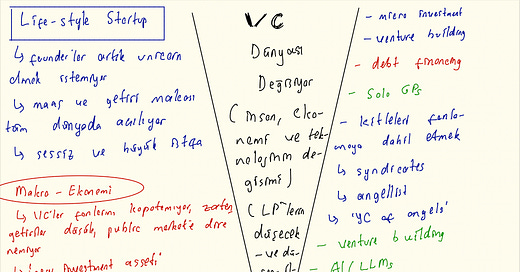 Life-style Startup
↳ founder'lar artık unicorn
olmak istemiyor
↳ maaş ve getiri makası
tüm dünyada açılıyor
↳ sessiz ve büyük
Makro - Ekonomi
↳ VC'ler fonlarını kapatamıyor, zaten
getiriler düşük, public markete dire
nemiyor
investment asseti'
VC
Dünyası
Değişiyor
(insan, eko-
nomi ve tek-
nolojinin de-
ğişimi)
(LP'lerin
düşecek
- micro investment
- venture building
- debt financing
- Solo GPs
- kitleleri fonla-
maya dahil etmek
↳ syndicates
↳ angellist
↳ 'YC of angels'
- venture building
- AI/LLMs